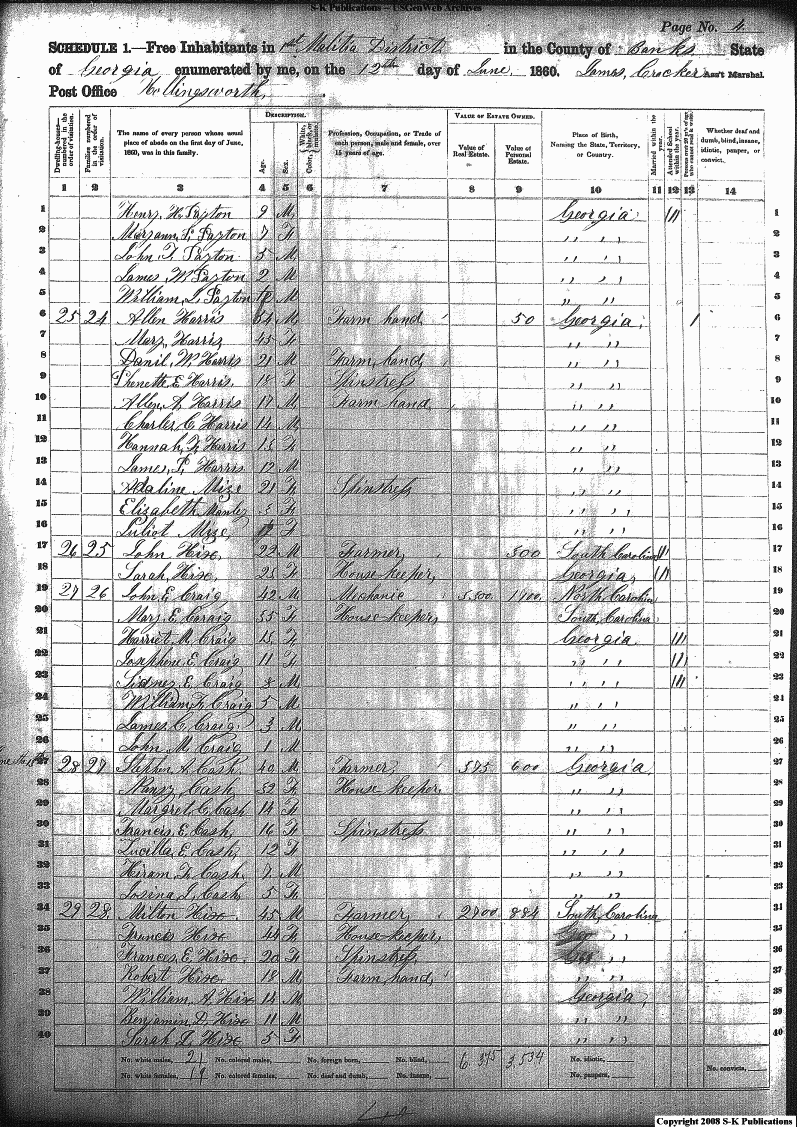 S-K Publications – USGenWeb Archives
Page No. 4
SCHEDULE 1.—Free Inhabitants in 1st Militia District in the County of Banks State
of Georgia enumerated by me, on the 12th day of June, 1860. James, Crocker Ass't Marshal
Post Office Hollingsworth
Dwelling-houses—numbered in the order of visitation. Families numbered in the order of visitation. The name of every person whose usual place of abode on the first day of June, 1860, was in this family. DESCRIPTION. Age. Sex. Color, Profession, Occupation, or Trade of each person, male and female, over 15 years of age. VALUE OF ESTATE OWNED. Value of Real Estate. Value of Personal Estate. Place of Birth, Naming the State, Territory, or Country. Married within the year. Attended School within the year. Whether deaf and dumb, blind, insane, idiotic, pauper, or convict.
1 2 3 4 5 6 7 8 9 10 11 12 13 14
1 Henry H. Payton 9 M Georgia / 1
2 Maryann P. Payton 7 F " " 2
3 John T. Payton 5 M " " 3
4 James W. Payton 2 M " " 4
5 William Payton M " " 5
6 25 24 Allen Harris 54 M Farm hand 50 Georgia / 6
7 Mary Harris 45 F " " 7
8 Danil W. Harris 21 M Farm hand " " 8
9 E. Harris 18 F Spinstress " " 9
10 Allen A. Harris 17 M Farm hand " " 10
11 Charles C. Harris 14 M " " 11
12 Hannah F. Harris 13 F " " 12
13 James Harris 12 M " " 13
14 Adaline Mize 21 F Spinstress " " 14
15 Elizabeth 3 F " " 15
16 Mize F " " 16
17 26 25 John Hise 22 M Farmer 300 South Carolina / 17
18 Sarah Hise 23 F House keeper Georgia / 18
19 27 26 John E. Craig 42 M Mechanic 1900 North Carolina 19
20 Mary E. Craig 35 F House-keeper South Carolina 20
21 Harriet M. Craig 13 F Georgia / 21
22 Josephene E. Craig 11 F " " / 22
23 Sidney E. Craig 8 M " " / 23
24 William Craig 5 M " " 24
25 James C. Craig 3 M " " 25
26 John M. Craig 1 M " " 26
27 28 27 Stephen A. Cash 40 M Farmer 575 600 Georgia 27
28 Nancy Cash 32 F House keeper " " 28
29 Margret C. Cash 14 F " " 29
30 Francis E. Cash 16 F Spinstress " " 30
31 Lucilla E. Cash 12 F " " 31
32 Hiram F. Cash 7 M " " 32
33 Cash 5 F " " 33
34 29 28 Milton Hise 45 M Farmer 2900 884 South Carolina 34
35 Francis Hise 44 F House-keeper " " 35
36 Frances E. Hise 20 F Spinstress " " 36
37 Robert Hise 18 M Farm hand " " 37
38 William A. Hise 14 M Georgia 38
39 Benjamin D. Hise 11 M " " 39
40 Sarah Hise 5 F " " 40
No. white males, 21 No. colored males, No. foreign born, No. blind, 6,375 3,534 No. idiotic,
No. white females, 19 No. colored females, No. deaf and dumb, No. insane, No. paupers, No. convicts,
Copyright 2008 S-K Publications